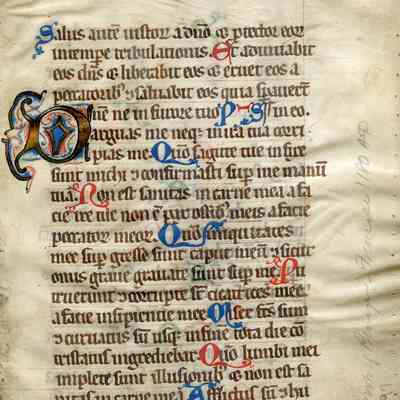 Salus autē iustor a dño ⁊ ꝓtector eor
in tempe tribulationis. Et adiuuabit
eos dn̄s ⁊ liberabit eos ⁊ eruet eos a
peccatorib; ⁊ saluabit eos quia spauer̄t
Dn̄e ne in furore tuo in eo.
arguas me neq; in ira tua corri
pias me. Qm̄ sagitte tue in fixe
sunt michi ⁊ confirmasti sup me manū
tuā. Non est sanitas in carne mea a fa
cie ire tue non ē pax ossib; meis a facie
peccator meor. Qm̄ iniquitates
mee sup gresse sunt caput meū ⁊ sicut
onus graue grauate sunt sup me. Pu
truerunt ⁊ corrupte st̄ cicatrices mee
a facie insipiencie mee. Miser fc̄s sum
⁊ curuatus sū usq; in finē tota die cō
tristatus ingrediebar. Qm̄ lumbi mei
impleti sunt illusionib; ⁊ non est sa
nitas in carne mea. Afflictus sū ⁊ hu